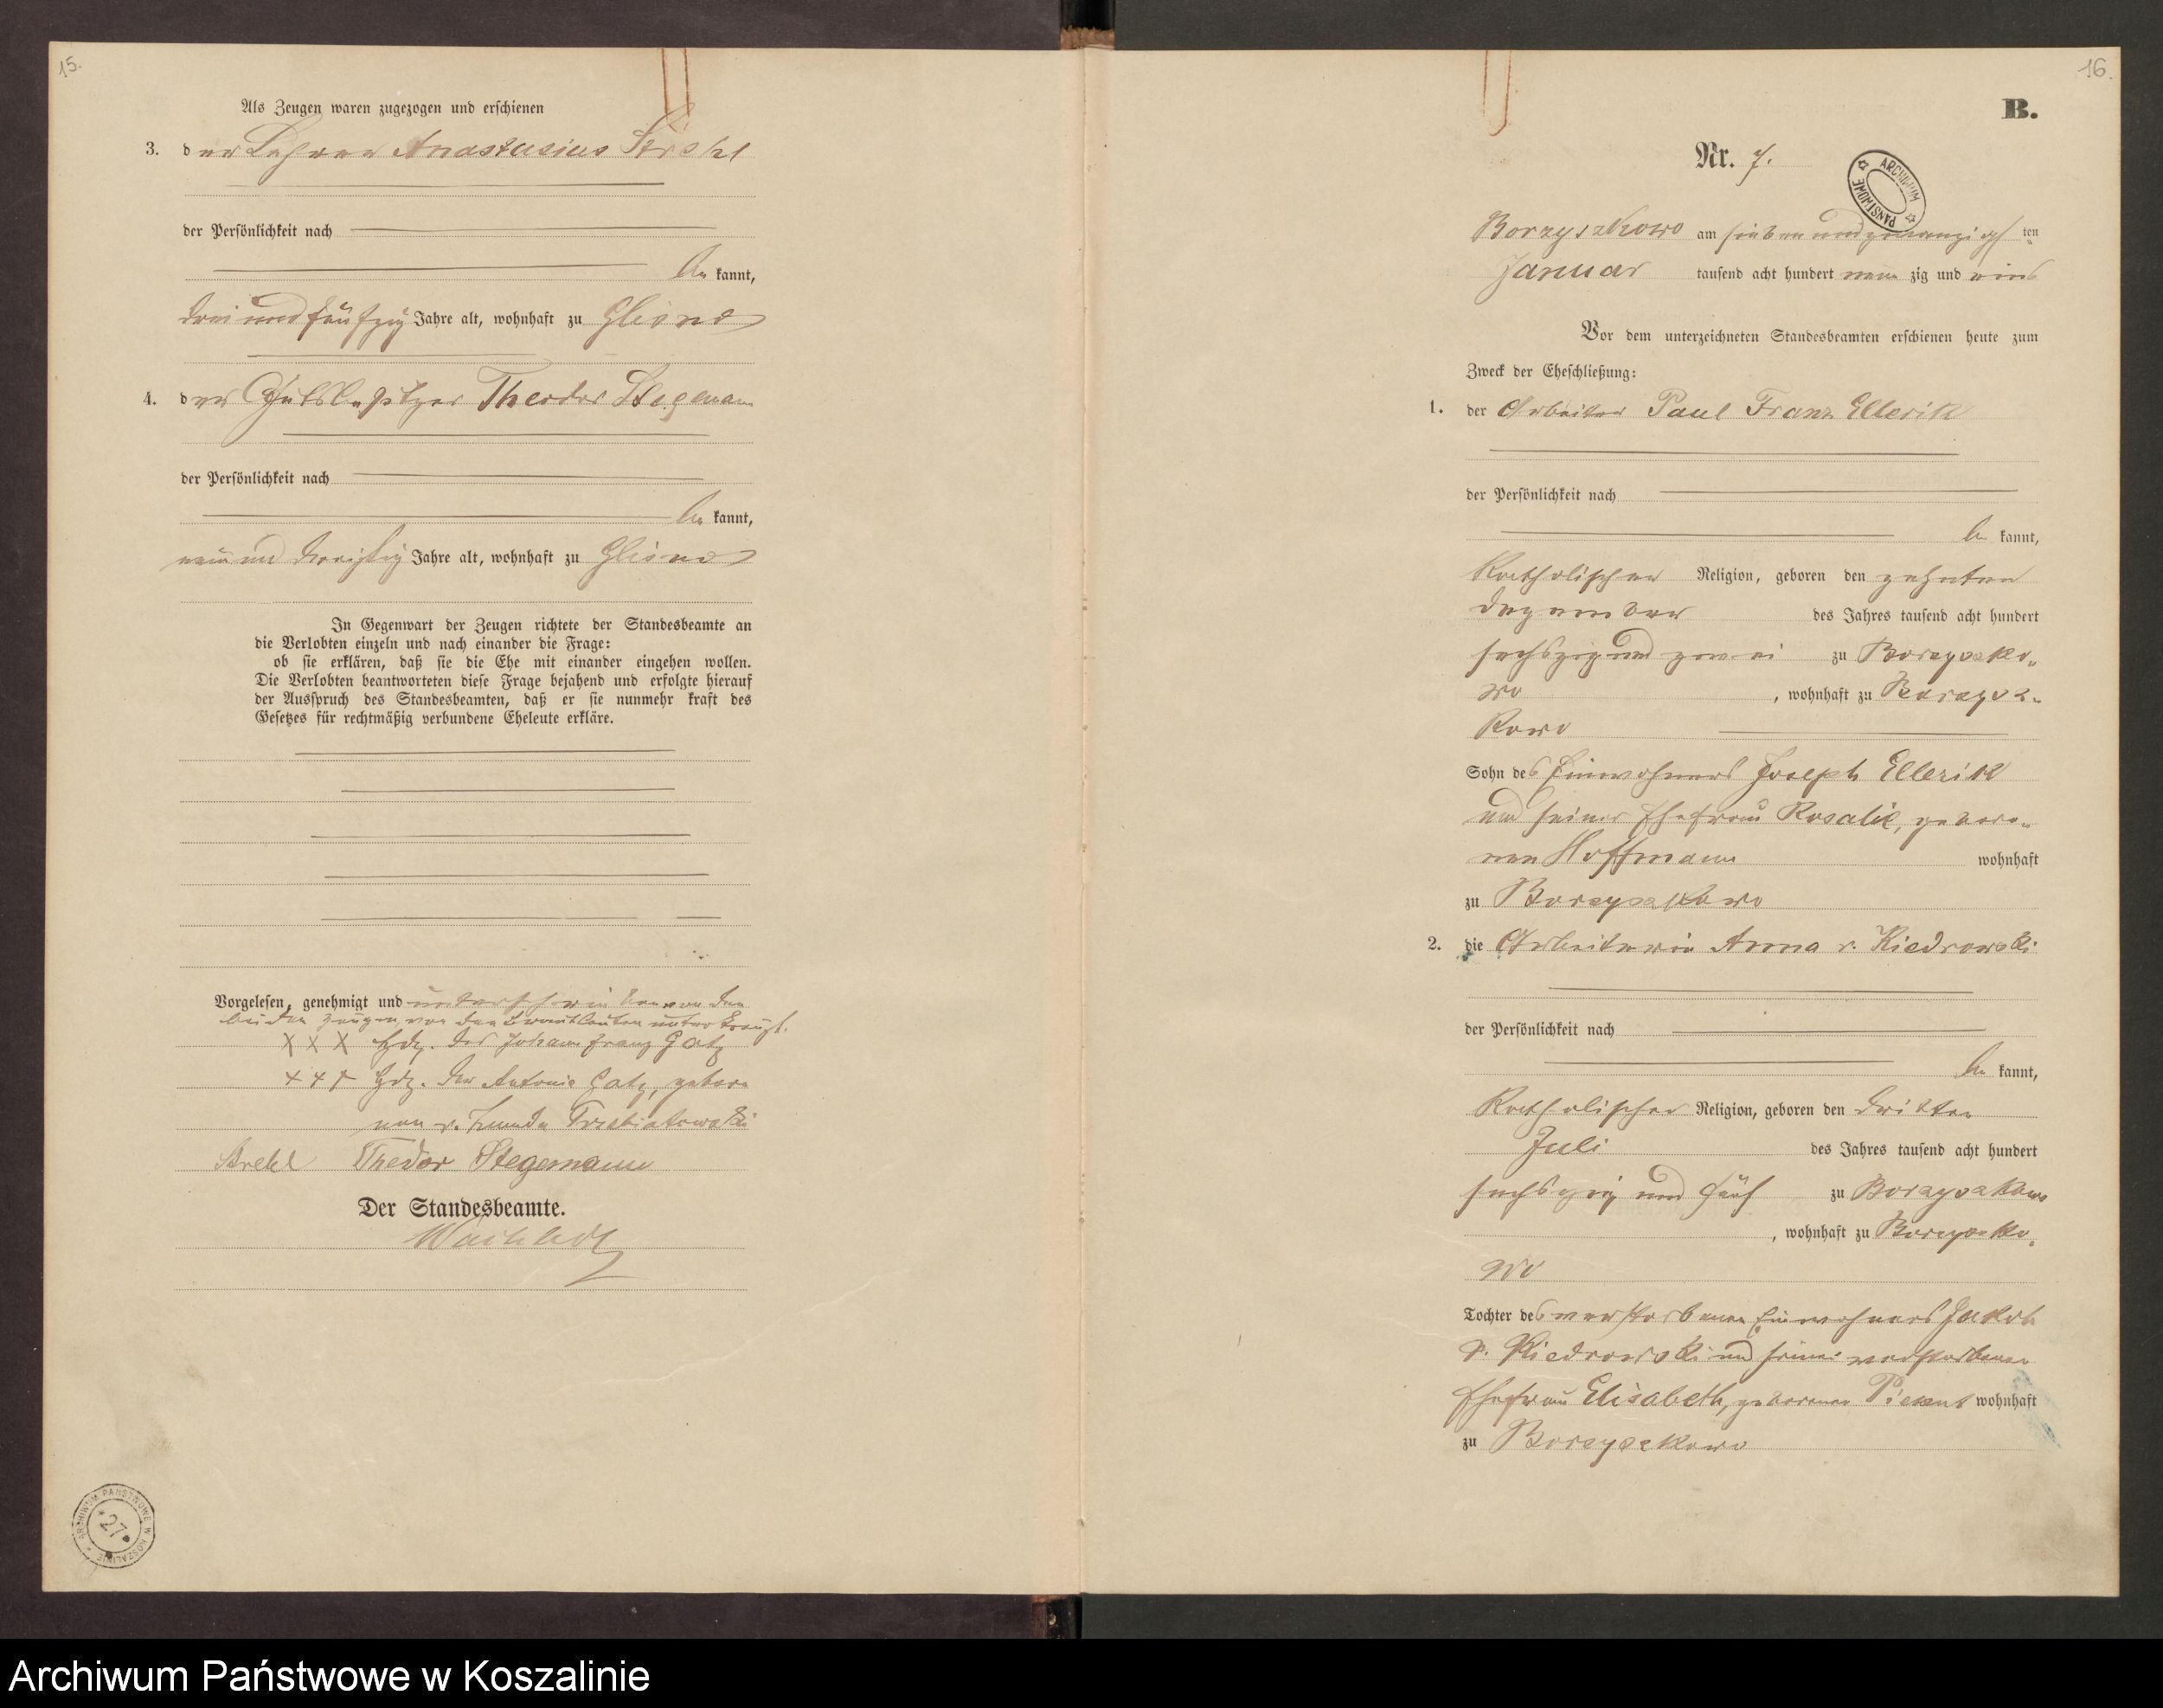 15.
Als Zeugen waren zugezogen und erschienen
3. der Lehrer Anastasius Strehl
der Persönlichkeit nach
be kannt,
drei und fünfzig Jahre alt, wohnhaft zu Gliśno
4. der Gutsbesitzer Theodor Stegemann
der Persönlichkeit nach
be kannt,
neun und dreißig Jahre alt, wohnhaft zu Gliśno
In Gegenwart der Zeugen richtete der Standesbeamte an
die Verlobten einzeln und nach einander die Frage:
ob sie erklären, daß sie die Ehe mit einander eingehen wollen.
Die Verlobten beantworteten diese Frage bejahend und erfolgte hierauf
der Ausspruch des Standesbeamten, daß er sie nunmehr kraft des
Gesetzes für rechtmäßig verbundene Eheleute erkläre.
Vorgelesen, genehmigt und unterschrieben von den
beiden Zeugen, von den Brautleuten unterkreuzt.
X X X Hdz. des Johann Franz Gatz
+ + + Hdz. der Antonie Gatz, gebore
nen v. Trzebiatowski
Strehl Theodor Stegemann
Der Standesbeamte.
ARCHIWUM PAŃSTWOWE W KOSZALINIE
*27*
16.
B.
Nr. 7.
ARCHIWUM PAŃSTWOWE
Borzyszkowo am sieben und zwanzigs ten
Januar tausend acht hundert neun zig und eins
Vor dem unterzeichneten Standesbeamten erschienen heute zum
Zweck der Eheschließung:
1. der Arbeiter Paul Franz Ellerik
der Persönlichkeit nach
be kannt,
Katholischer Religion, geboren den zehnten
Dezember des Jahres tausend acht hundert
sechszig und zwei zu Borzyszko-
wo, wohnhaft zu Borzysz-
kowo
Sohn des Einwohners Joseph Ellerik
und seiner Ehefrau Rosalie, gebore-
nen Hoffmann wohnhaft
zu Borzyszkowo
2. die Arbeiterin Anna v. Kiedrowski
der Persönlichkeit nach
be kannt,
Katholischer Religion, geboren den dritten
Juli des Jahres tausend acht hundert
sechszig und fünf zu Borzyszkowo
, wohnhaft zu Borzyszko-
wo
Tochter des verstorbenen Einwohners Jakob
v. Kiedrowski und seiner verstorbenen
Ehefrau Elisabeth, geborenen wohnhaft
zu Borzyszkowo
Archiwum Państwowe w Koszalinie